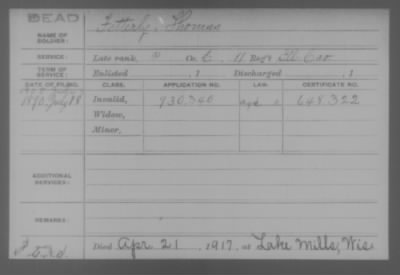 DEAD
NAME OF SOLDIER: Fetterly, Thomas
SERVICE: Late rank, Co. C, 11 Reg't Ill Cav
TERM OF SERVICE: Enlisted , 1 Discharged , 1
DATE OF FILING. CLASS. APPLICATION NO. LAW. CERTIFICATE NO.
1890, July 18 Invalid, 930,340 648,322
Widow,
Minor,
ADDITIONAL SERVICES:
REMARKS:
Died Apr. 21, 1917, at Lake Mills, Wis